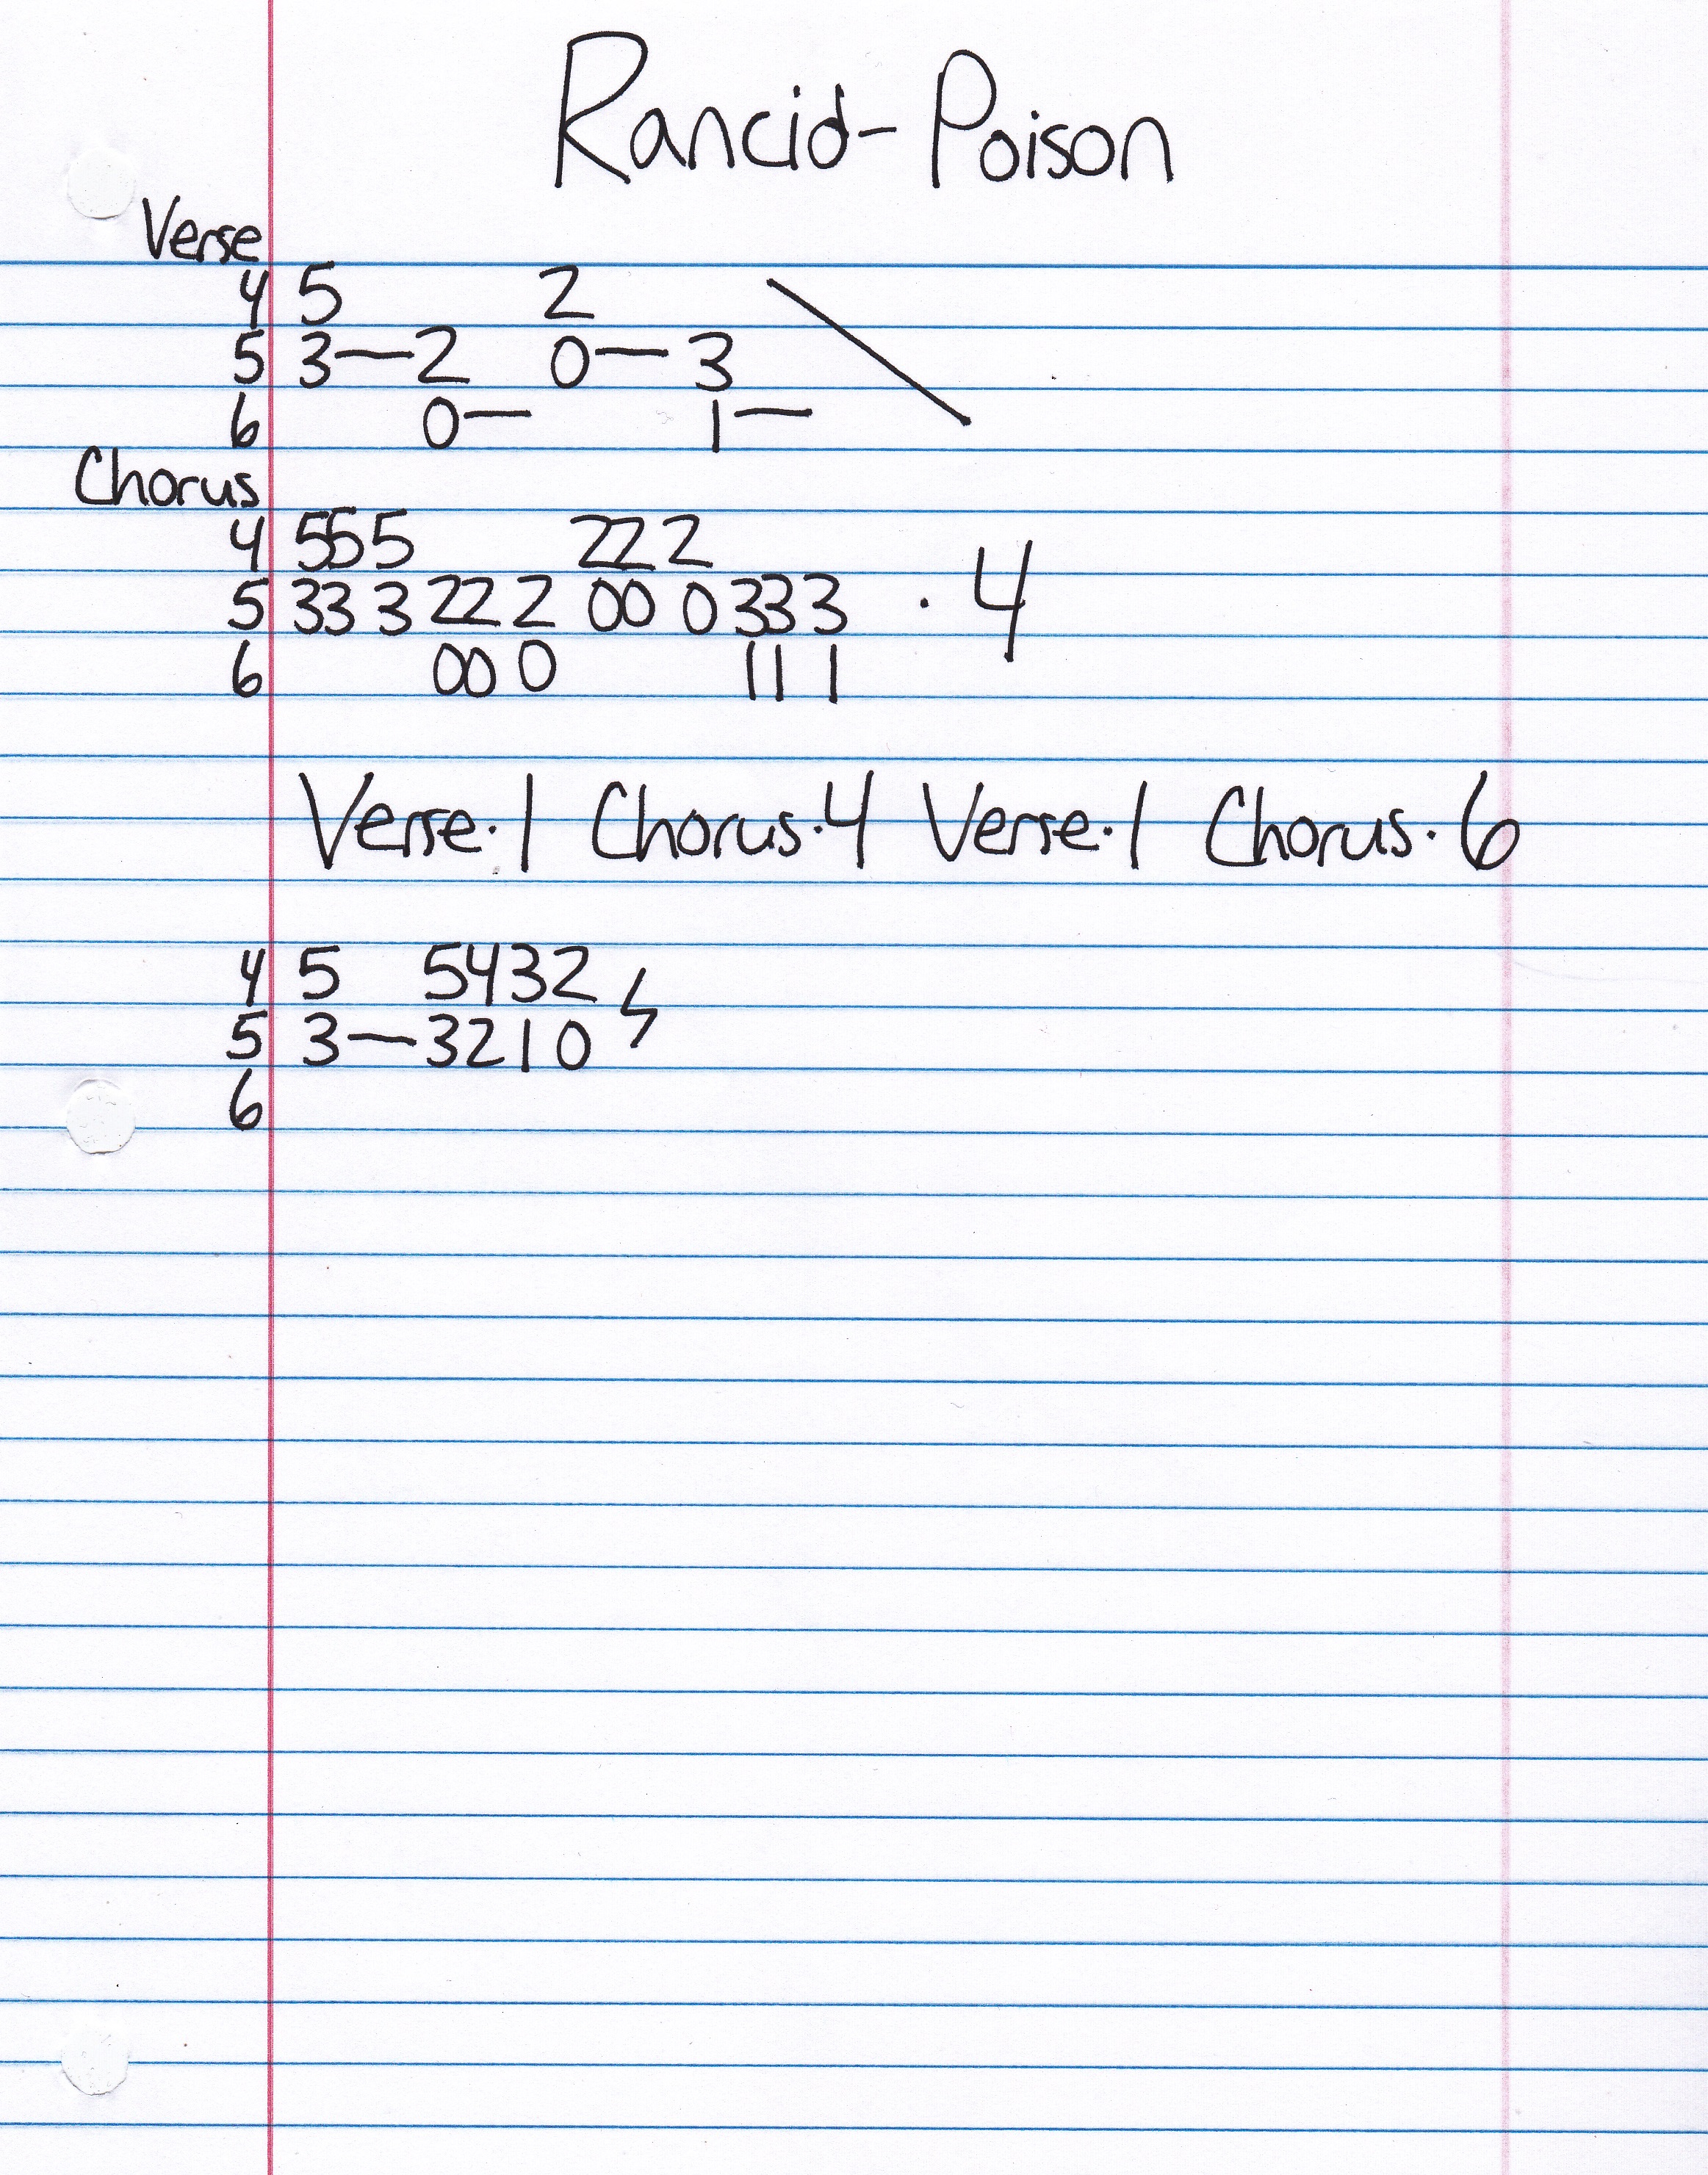 Rancid- Poison
Verse
4 5 2
5 3—2 0—3
6 0— 1—
Chorus
4 555 222
5 333 222 000 333 · 4
6 000 111
Verse·1 Chorus·4 Verse·1 Chorus·6
4 5 5432
5 3—3210
6